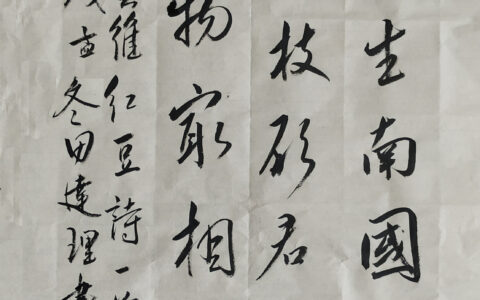 生南國
枝願君
物最相
維红豆詩一
冬田達理書